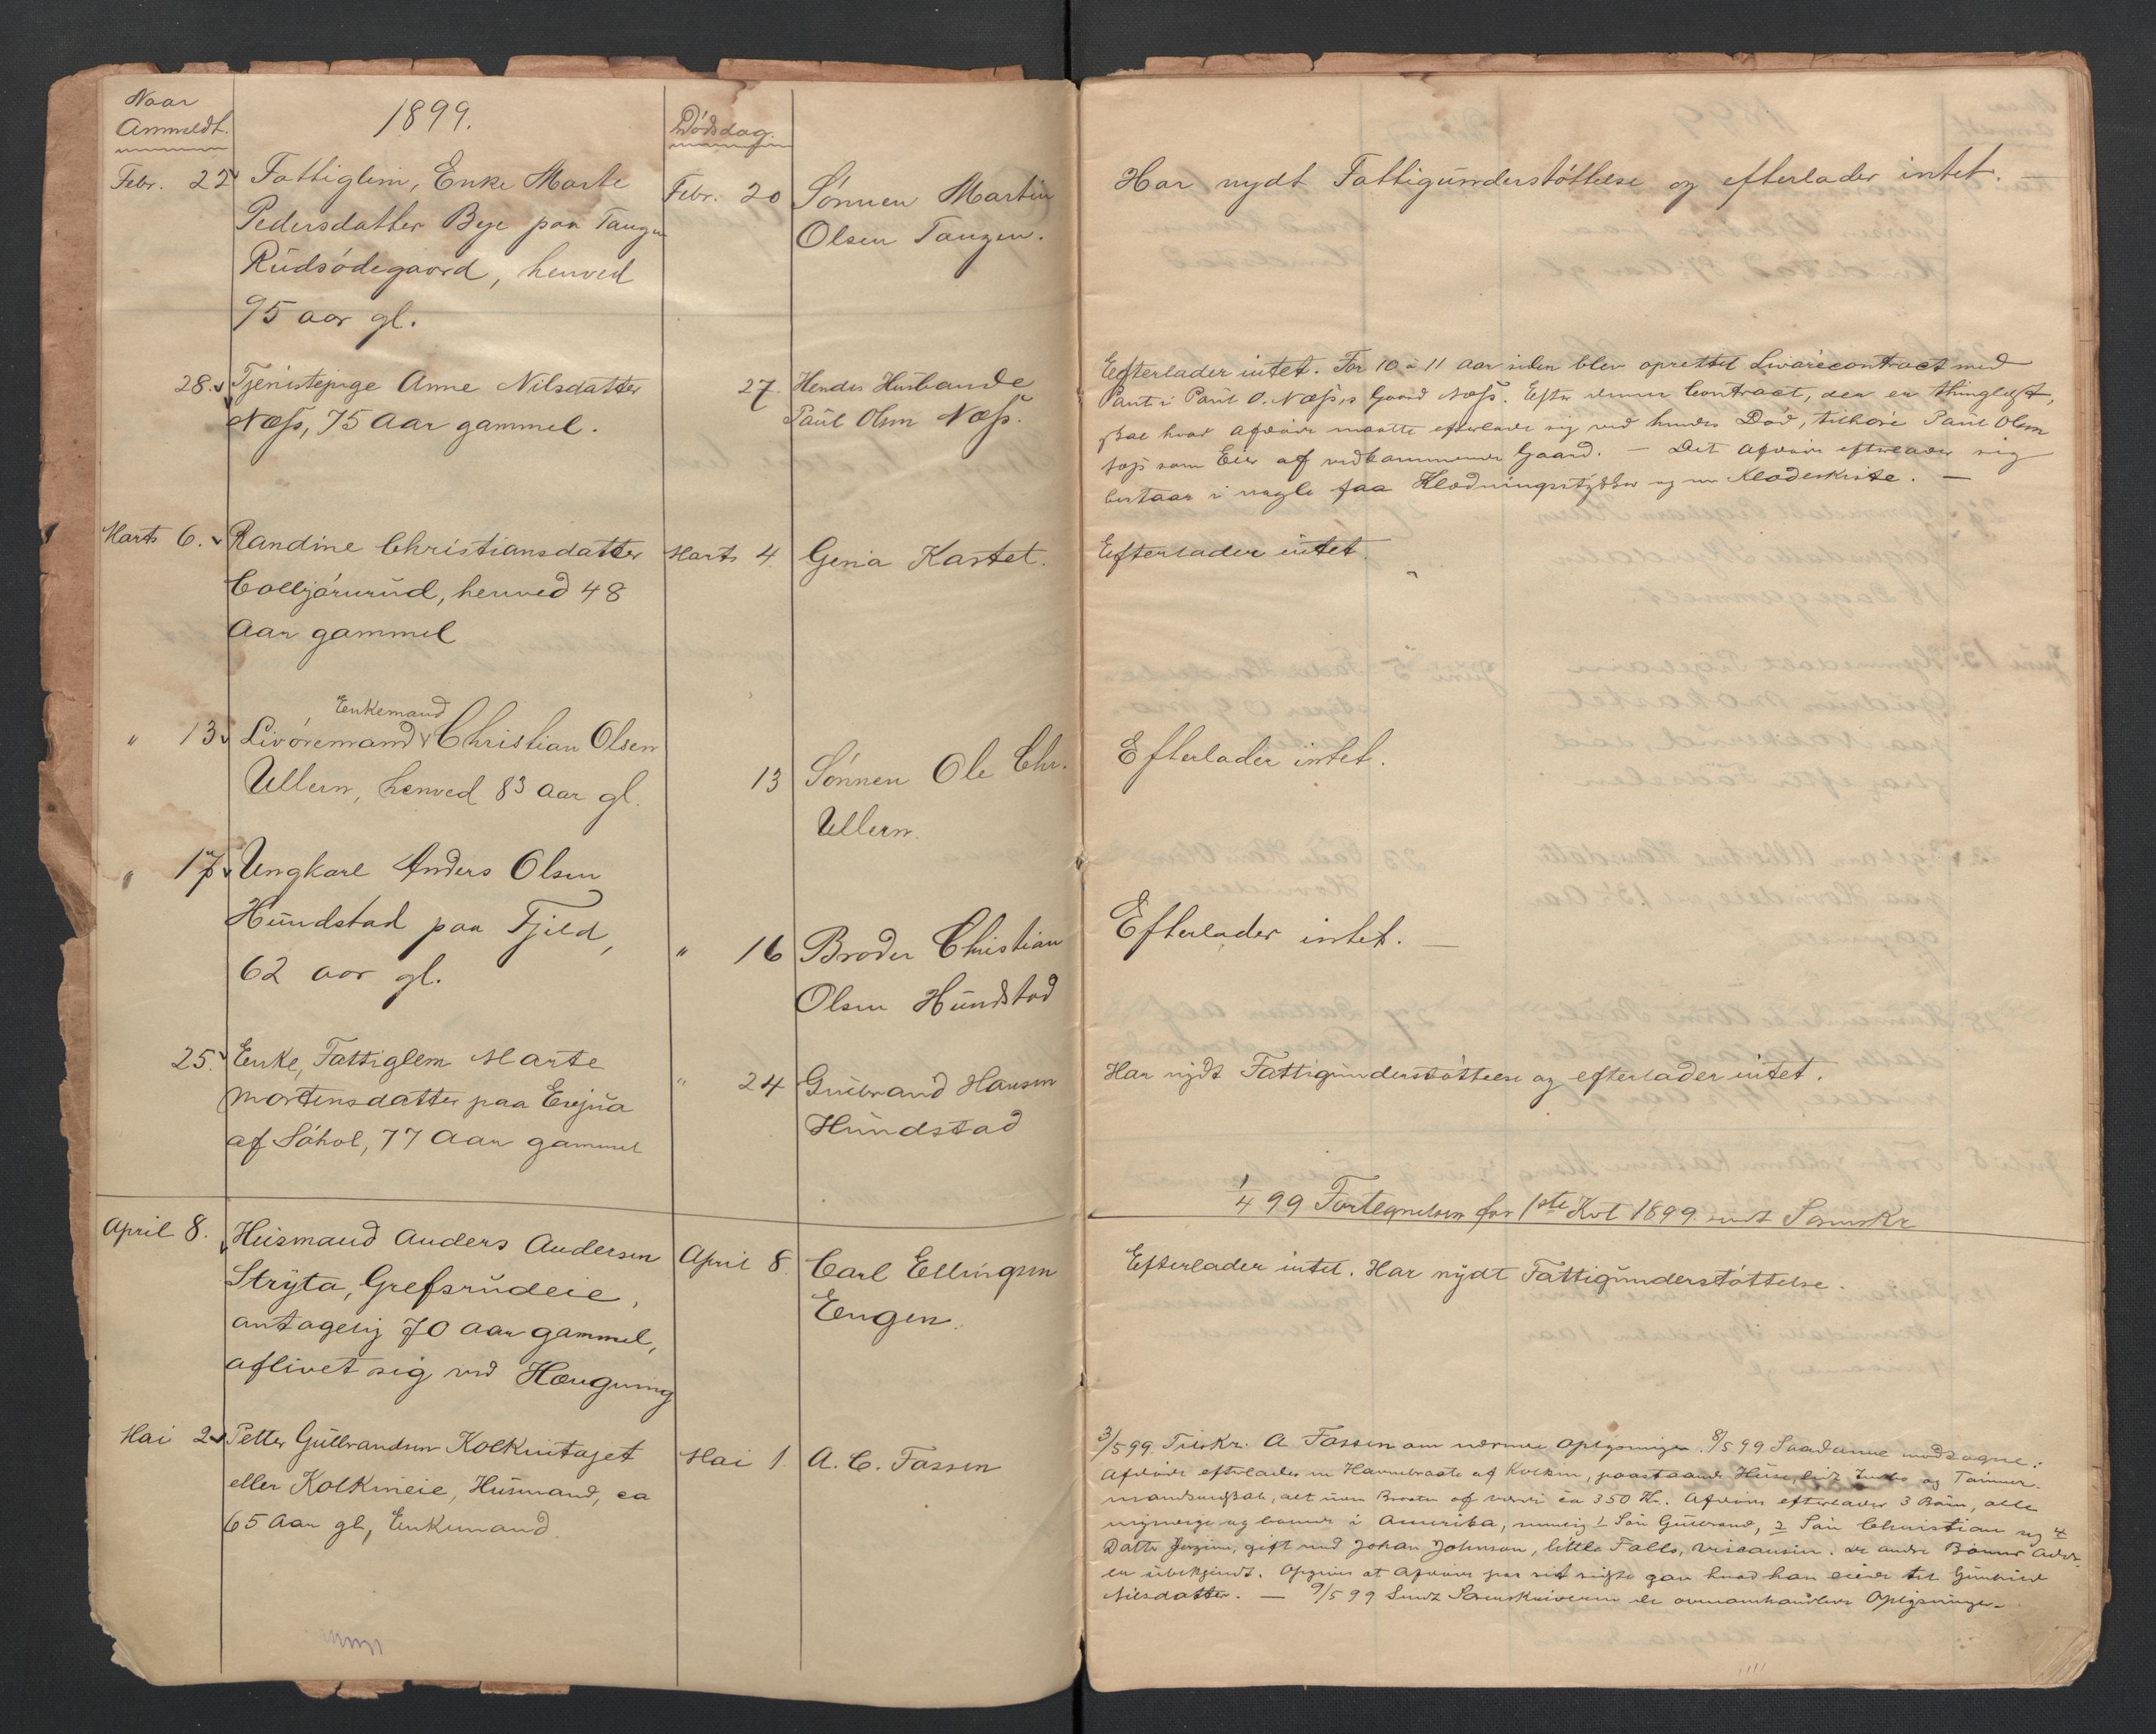 Naar
Anmeldt.
1899.
Dødsdag.
Febr. 22 Fattiglem, Enke Marte
Pedersdatter Bye paa Tangen
Rudsødegaard, henved
95 aar gl.
Febr. 20 Sønnen Martin
Olsen Tangen.
Har nydt Fattigunderstøttelse og efterlader intet. —
28. Tjenestepige Anne Nilsdatter
Næss, 75 Aar gammel.
27. Hendes Husbonde
Paul Olsen Næss.
Efterlader intet. For 10 à 11 Aar siden blev oprettet Livørecontract med
Pant i Paul O. Næss,s Gaard Næss. Efter denne Contract, der er thinglæst,
skal hvad Afdøde maatte efterlade sig ved hendes Død, tilhøre Paul Olsen
Næss som Eier af vedkommende Gaard. — Det Afdøde efterlader sig
bestaar i nogle faa Klædningsstykker og en Klædeskiste. —
Marts 6. Randine Christiansdatter
henved 48
Aar gammel
Marts 4. Genia Kastet.
Efterlader intet.
" 13 Livøremand Enkemand Christian Olsen
Ullern, henved 83 Aar gl.
13 Sønnen Ole Chr.
Ullern.
Efterlader intet.
" 17 Ungkarl Anders Olsen
Hundstad paa Fjeld,
62 aar gl.
" 16 Broder Christian
Olsen Hundstad
Efterlader intet. —
25. Enke, Fattiglem Marte
Mortensdatter paa
af Søhol, 77 Aar gammel
" 24 Gulbrand Hansen
Hundstad
Har nydt Fattigunderstøttelse og efterlader intet.
1/4 99 Fortegnelsen for 1ste Kvt 1899 sendt Sorenskr
April 8. Husmand Anders Andersen
Stryta, Grefsrudeie,
antagelig 70 Aar gammel,
aflivet sig ved Hængning
April 8. Carl Ellingsen
Engen.
Efterlader intet. Har nydt Fattigunderstøttelse.
Mai 2 Petter Gulbrandsen
eller Kolkineie, Husmand, ca
65 Aar gl, Enkemand.
Mai 1. A. C. Fossen
3/5 99 Tilskr. A Fossen om nærmere Oplysninger. 8/5 99 Saadanne modtagne:
Afdøde efterlader en af paastaaende Huse, lidt Indbo og Tømmer-
mandsredskab, alt af værdi ca 350 Kr. Afdøde efterlader 3 Børn, alle
myndige og boende i Amerika, nemlig 1 Søn Gulbrand, 2 Søn Christian og
Datter gift med Johan Johnson, little Falls, Viscansin. de andre Børns Adr.
er ubekjendt. Opgives at Afdøde paa sit sidste gav hvad han eiede til Gunhild
Nilsdatter. — 9/5 99 Sendt Sorenskriveren de ovennævnte Oplysninger